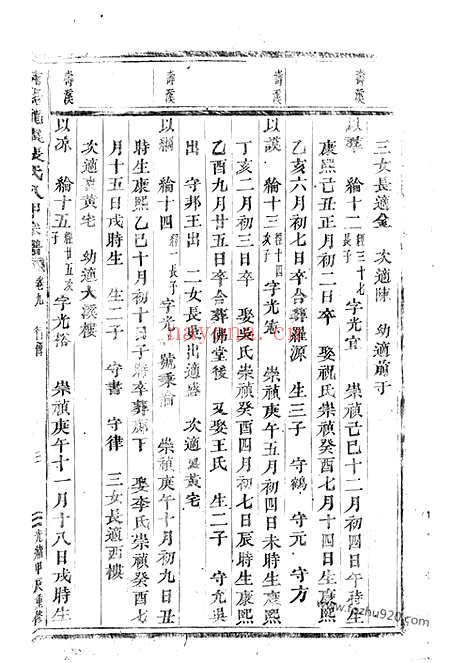 壽溪
壽溪
壽溪
壽溪
三女長適金　次適陳　幼適前于
以　綸十二　經三十七長子　字光宜　崇禎己巳十二月初四日午時生
康熙己丑正月初二日卒　娶祝氏崇禎癸酉七月十四日生康熙
乙亥六月初七日卒合葬羅源　生三子　守鶴　守元　守方
以謨　綸十三　經十四次子　字光憲　崇禎庚午五月初四日未時生康熙
丁亥二月初三日卒　娶吳氏崇禎癸酉四月初七日辰時生康熙
乙酉九月廿五日卒合葬佛堂後　又娶王氏　生二子　守允吳
出　守邦王出　二女長吳出適盛　次適黃宅
以　綸十四　經一長子　字光　號秉　崇禎庚午十月初九日丑
時生康熙乙巳十月初十日子時卒葬下　娶李氏崇禎癸酉七
月十五日戌時生　生二子　守書　守律　三女長適西樓
次適黃宅　幼適大溪樓
以凉　綸十五　經廿五次子　字光裕　崇禎庚午十一月十八日戌時生
宗譜　卷九　行傳　三　光緒甲辰重修
nayona.cn
www.fozhu920.com